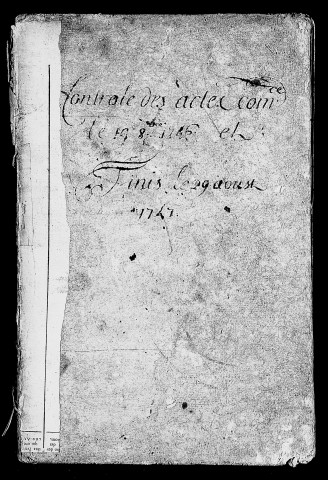 Controle des actes Com.cé
le 19 8bre 1746 et
Finis le 29 aoust
1747.